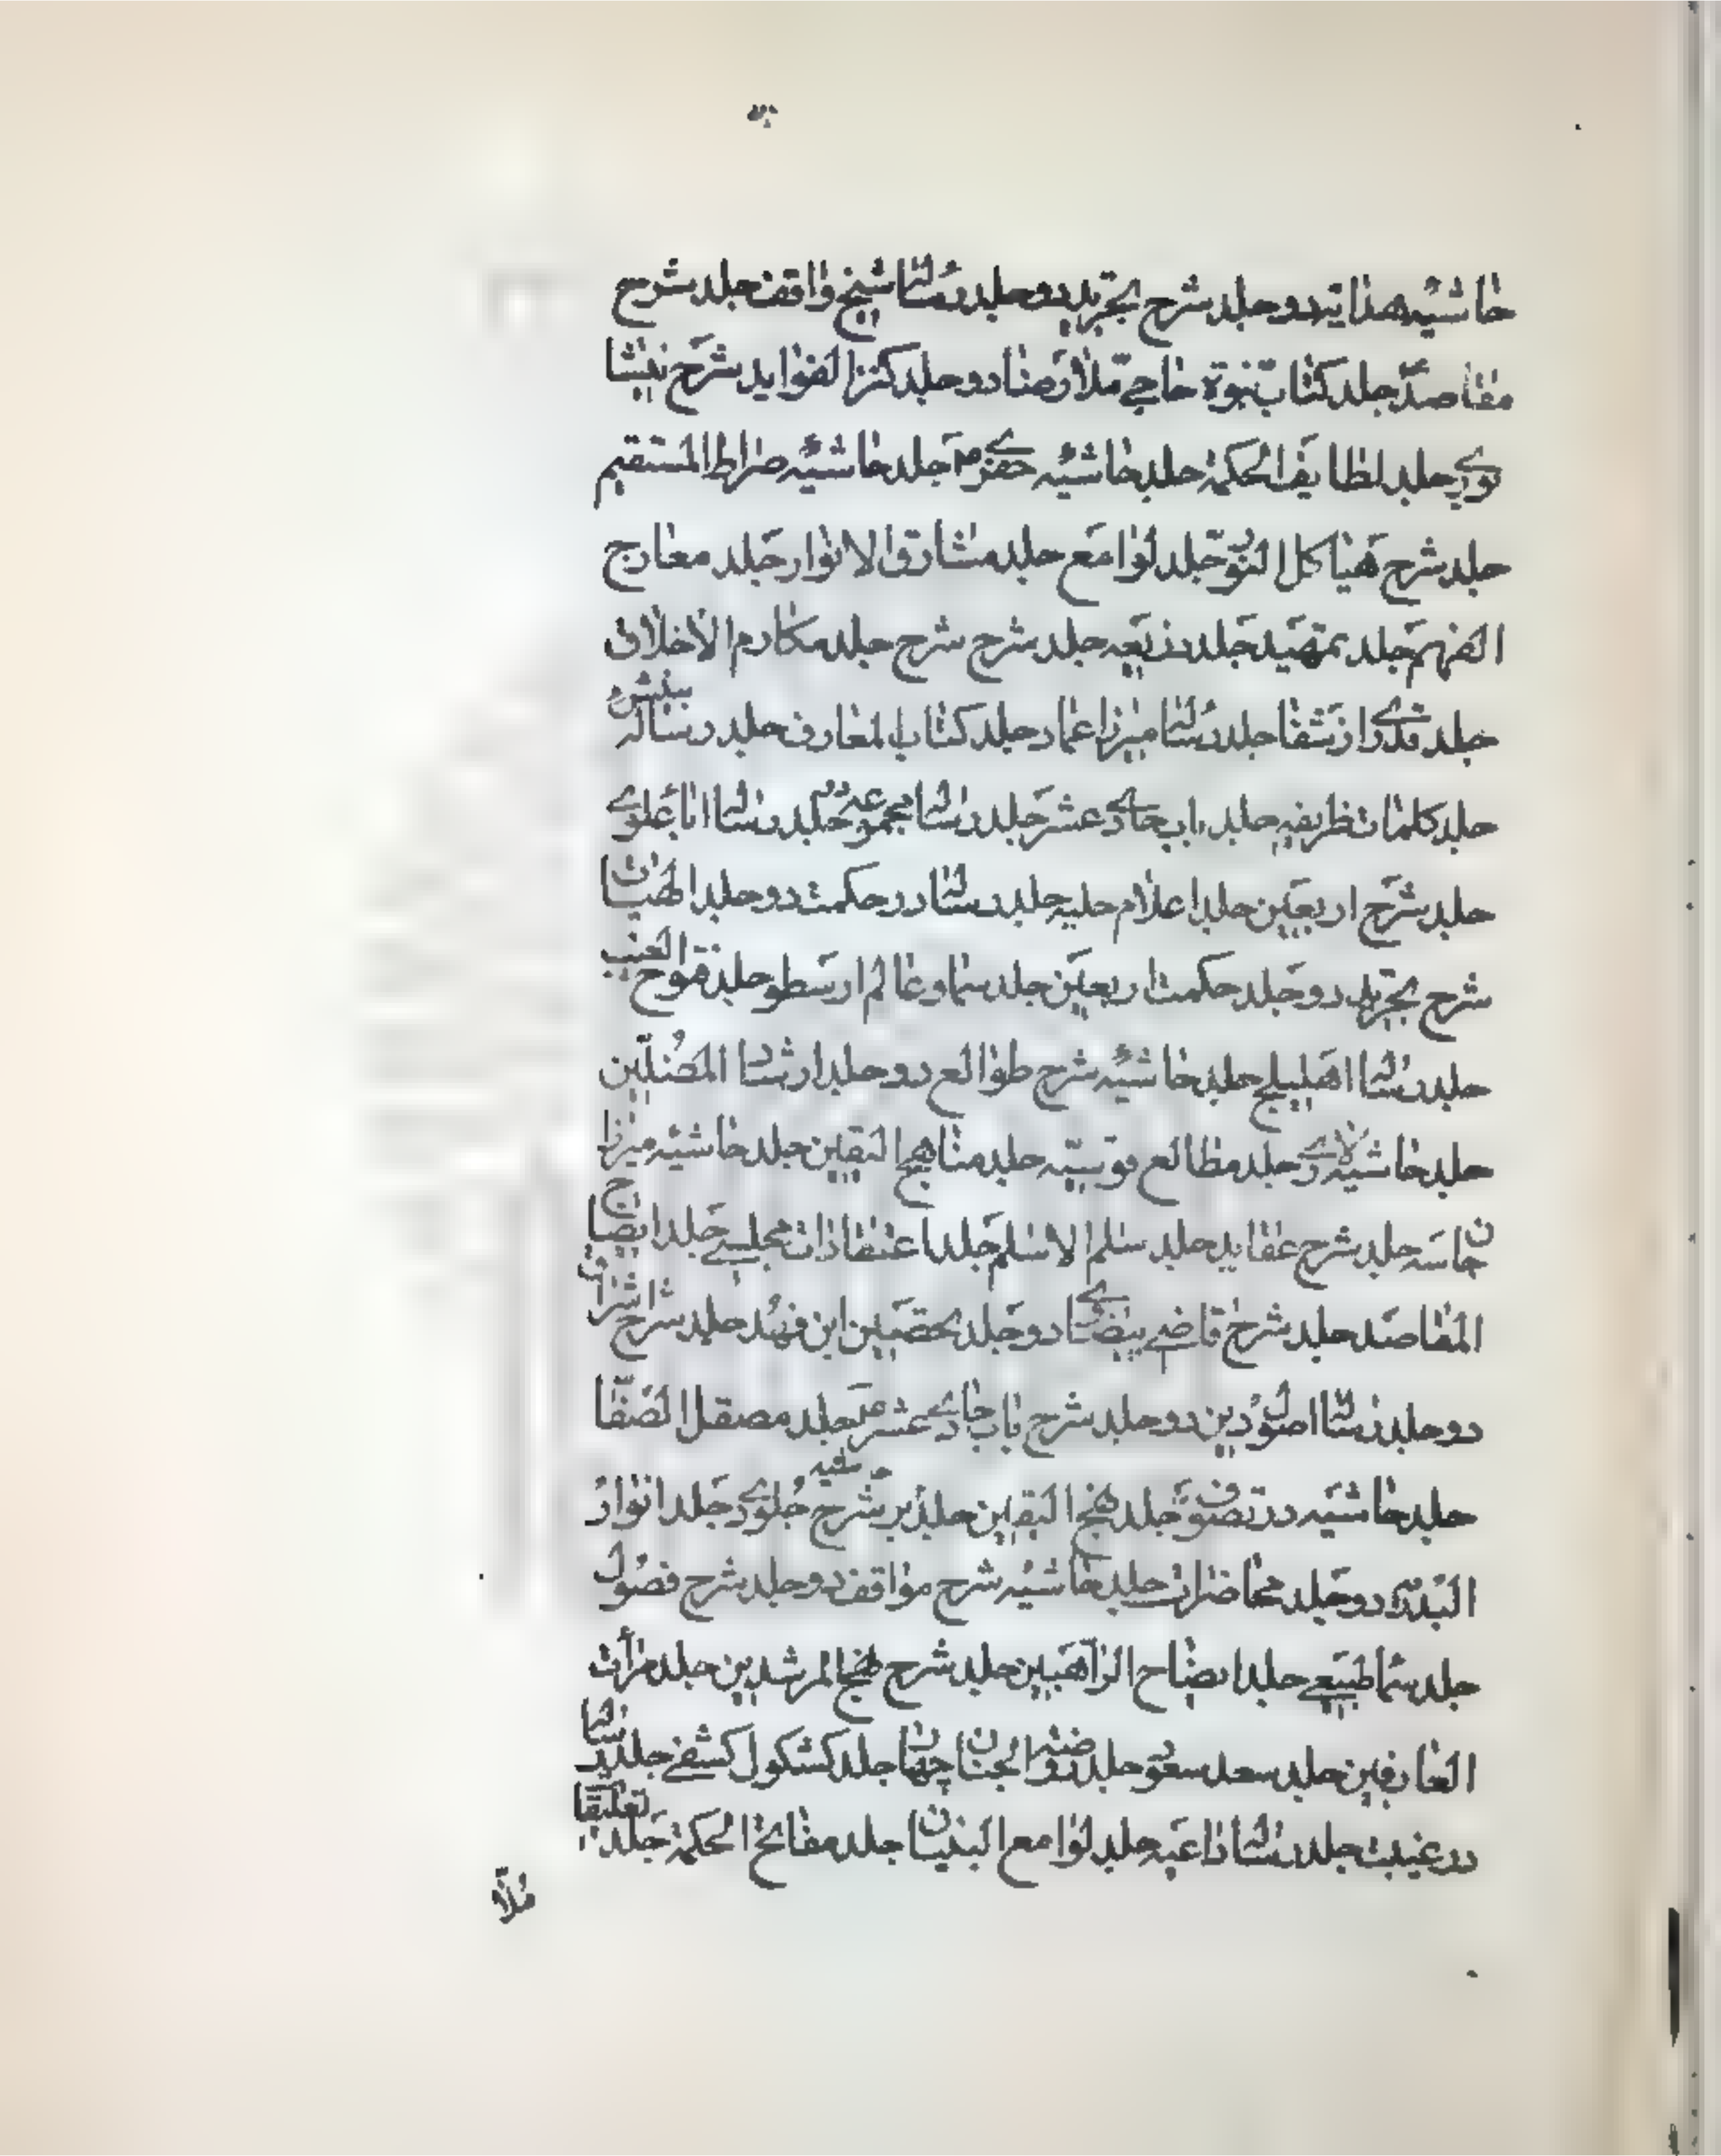 حاشیه هدایه دو جلد شرح تجرید دو جلد رساله شیخ واقف جلد شرح
مقاصد جلد کتاب نبوة حاجی ملا رضا دو جلد کنز الفواید شرح نیشا
بوری جلد لطایف الحکمة جلد حاشیه خفری جلد حاشیه صراط المستقیم
جلد شرح هیاکل النور جلد لوامع جلد مشارق الانوار جلد معارج
الفهم جلد تمهید جلد ذریعه جلد شرح شرح جلد مکارم الاخلاق
جلد قدری از شفا جلد رساله میرزا عماد جلد کتاب المعارف جلد رساله
جلد کلمات ظریفه جلد باب حادی عشر جلد رساله مجموعه جلد رساله
جلد شرح اربعین جلد اعلام جلیه جلد رساله در حکمت دو جلد الهیات
شرح تجرید دو جلد حکمت اربعین جلد سما و عالم ارسطو جلد فتوح الغیب
جلد رساله اهلیلج جلد حاشیه شرح طوالع دو جلد ارشاد المضلین
جلد حاشیه لاری جلد مطالع جلد مناهج الیقین جلد حاشیه میرزا
جان جلد شرح عقاید جلد سلم الاسلم جلد اعتقادات مجلسی جلد ایضاح
المقاصد جلد شرح قاضی بیضاوی دو جلد تحصین ابن فهد جلد شرح اشراق
دو جلد رساله اصول دین دو جلد شرح باب حادی عشر جلد مصقل الصفا
جلد حاشیه در تصوف جلد نهج الیقین جلد بر شرح جلد انوار
دو جلد محاضرات جلد حاشیه شرح مواقف دو جلد شرح فصول
جلد سماع طبیعی جلد ایضاح الراهبین جلد شرح نهج المرشدین جلد مرآت
العارفین جلد سعد سعود جلد روضة الجنان جلد کشکول کشفی جلد رساله
در غیبت جلد رساله داعیه جلد لوامع البنیان جلد مفاتح الحکمة جلد تعلیقات
ملا